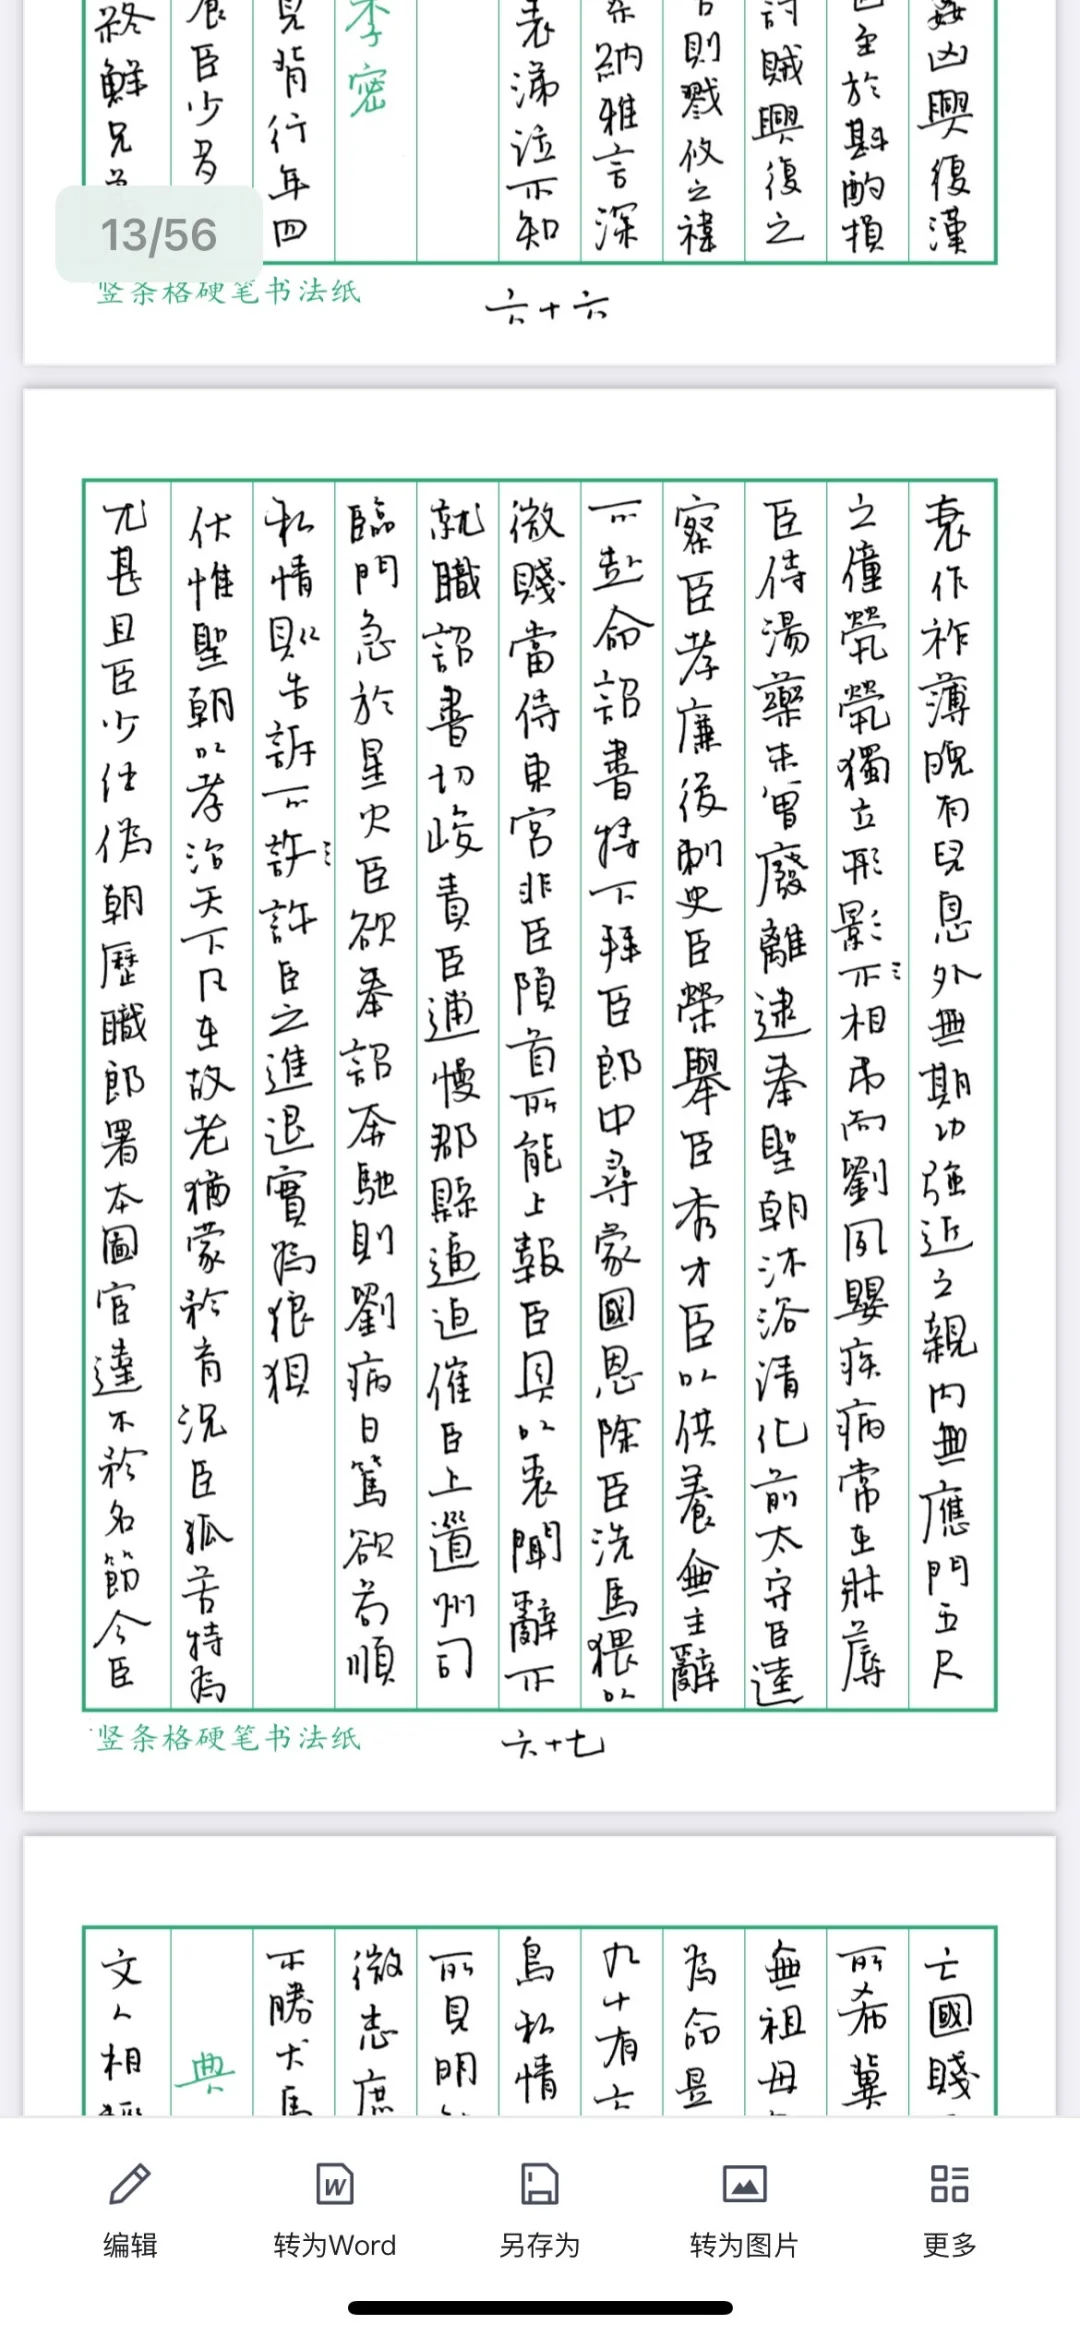 姦凶興復漢
至於斟酌損
討賊興復之
則戮攸之禕
納雅言深
表涕泣不知
李密
見背行年四
臣少多
終鮮兄
13/56
竖条格硬笔书法纸
六十六
衰作祚薄晚有兒息外無期功強近之親內無應門五尺
之僮煢煢獨立形影不相弔而劉夙嬰疾病常在牀蓐
臣侍湯藥未曾廢離逮奉聖朝沐浴清化前太守臣逵
察臣孝廉後刺史臣榮舉臣秀才臣以供養無主辭
不赴命詔書特下拜臣郎中尋蒙國恩除臣洗馬猥以
微賤當侍東宮非臣隕首所能上報臣具以表聞辭不
就職詔書切峻責臣逋慢郡縣逼迫催臣上道州司
臨門急於星火臣欲奉詔奔馳則劉病日篤欲苟順
私情則告訴不許許臣之進退實為狼狽
伏惟聖朝以孝治天下凡在故老猶蒙矜育況臣孤苦特為
尤甚且臣少仕偽朝歷職郎署本圖宦達不矜名節今臣
竖条格硬笔书法纸
六十七
亡國賤
所希冀
無祖母
為命是
九十有六
鳥私情
所見明
微志庶
不勝犬馬
典
文人相
编辑
转为Word
另存为
转为图片
更多